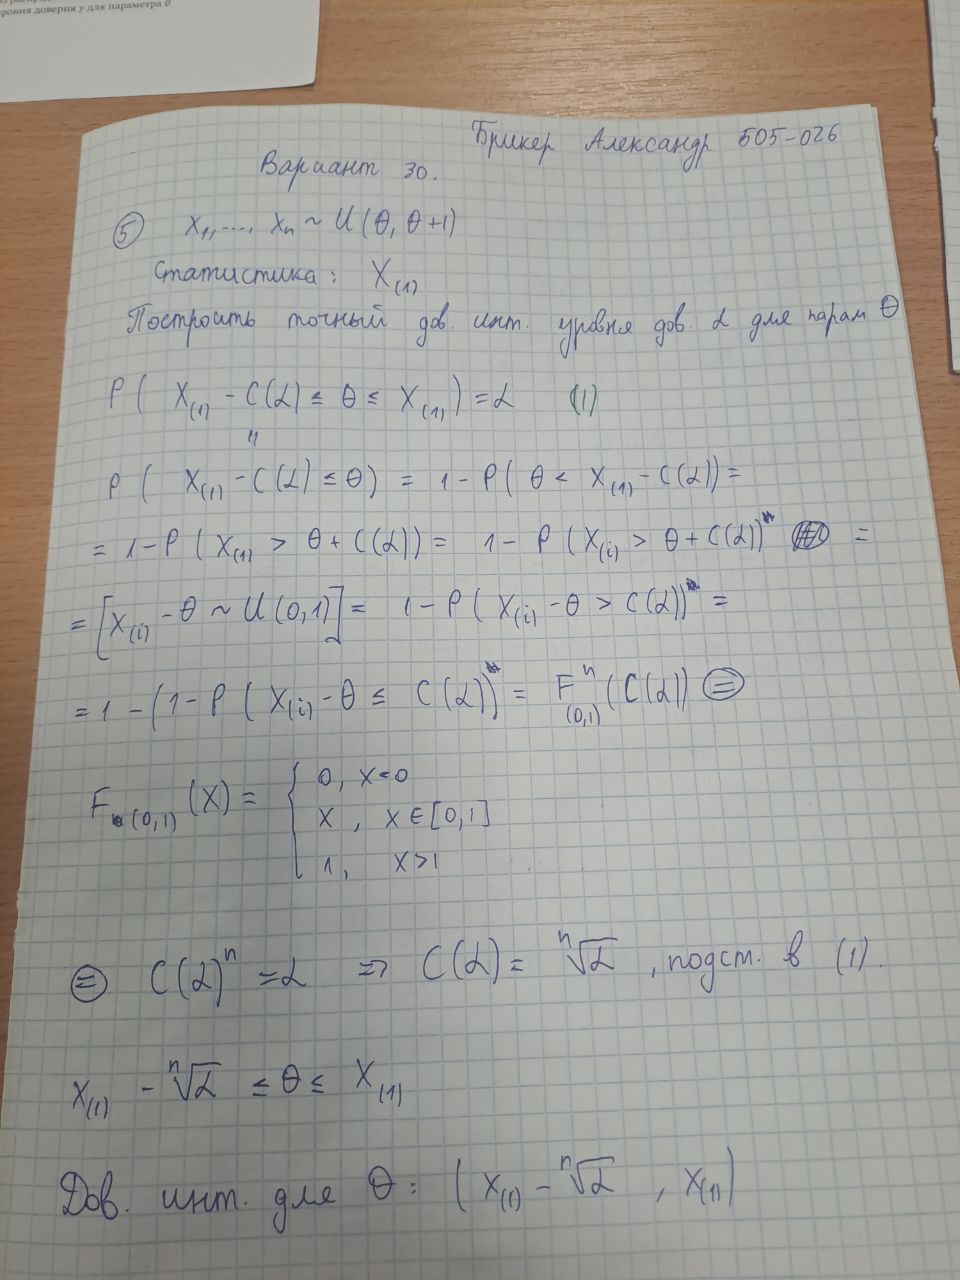 ровня доверия γ для параметра θ
Брикер Александр 605-026
Вариант 30.
⑤ X₁,..., Xₙ ~ U(θ, θ+1)
Статистика: X₍₁₎
Построить точный дов. инт. уровня дов. α для парам θ
P( X₍₁₎ - C(α) ≤ θ ≤ X₍₁₎) = α (1)
"
P( X₍₁₎ - C(α) ≤ θ) = 1 - P( θ < X₍₁₎ - C(α)) =
= 1 - P( X₍₁₎ > θ + C(α)) = 1 - P(X₍ᵢ₎ > θ + C(α))ⁿ =
= [X₍ᵢ₎ - θ ~ U(0,1)] = 1 - P( X₍ᵢ₎ - θ > C(α))ⁿ =
= 1 - (1 - P( X₍ᵢ₎ - θ ≤ C(α))ⁿ = Fⁿ₍₀,₁₎(C(α)) ⊜
F₍₀,₁₎(X) = { 0, x<0
x, x∈[0,1]
1, x>1
⊜ C(α)ⁿ = α ⇒ C(α) = ⁿ√α, подст. в (1).
X₍₁₎ - ⁿ√α ≤ θ ≤ X₍₁₎
Дов. инт. для θ: (X₍₁₎ - ⁿ√α, X₍₁₎)